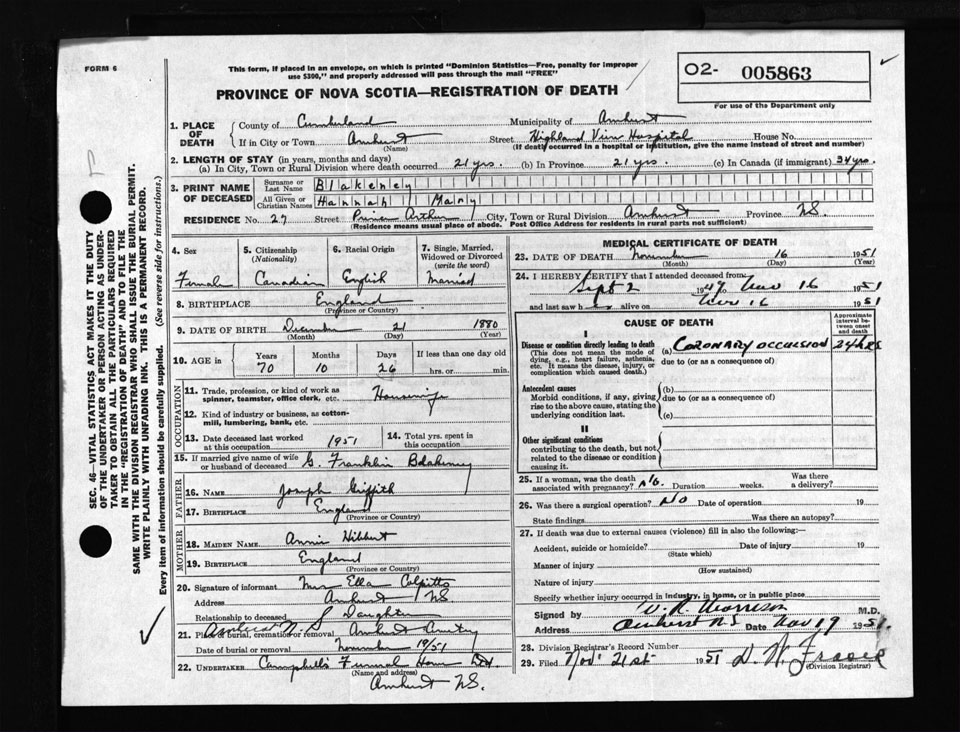 FORM 6
This form, if placed in an envelope, on which is printed "Dominion Statistics—Free, penalty for improper
use $300," and properly addressed will pass through the mail "FREE"
PROVINCE OF NOVA SCOTIA—REGISTRATION OF DEATH
02- 005863
For use of the Department only
SEC. 46—VITAL STATISTICS ACT MAKES IT THE DUTY
OF THE UNDERTAKER OR PERSON ACTING AS UNDER-
TAKER TO OBTAIN ALL THE PARTICULARS REQUIRED
IN THE "REGISTRATION OF DEATH" AND TO FILE THE
SAME WITH THE DIVISION REGISTRAR WHO SHALL ISSUE THE BURIAL PERMIT.
WRITE PLAINLY WITH UNFADING INK. THIS IS A PERMANENT RECORD.
Every item of information should be carefully supplied. (See reverse side for instructions.)
1. PLACE OF DEATH County of Cumberland Municipality of Amherst
If in City or Town Amherst Street Highland View Hospital House No.
(Name) (If death occurred in a hospital or institution, give the name instead of street and number)
2. LENGTH OF STAY (in years, months and days)
(a) In City, Town or Rural Division where death occurred 21 yrs. (b) In Province 21 yrs. (c) In Canada (if immigrant) 34 yrs.
3. PRINT NAME OF DECEASED Surname or Last Name Blakeney
All Given or Christian Names Hannah Mary
RESIDENCE No. 27 Street Prince Arthur City, Town or Rural Division Amherst Province N.S.
(Residence means usual place of abode. Post Office Address for residents in rural parts not sufficient)
4. Sex Female
5. Citizenship (Nationality) Canadian
6. Racial Origin English
7. Single, Married, Widowed or Divorced (write the word) Married
8. BIRTHPLACE England
(Province or Country)
9. DATE OF BIRTH December 21 1880
(Month) (Day) (Year)
10. AGE in Years 70 Months 10 Days 26 If less than one day old hrs. or min.
OCCUPATION
11. Trade, profession, or kind of work as
spinner, teamster, office clerk, etc. Housewife
12. Kind of industry or business, as cotton-
mill, lumbering, bank, etc.
13. Date deceased last worked
at this occupation 1951
14. Total yrs. spent in
this occupation
15. If married give name of wife
or husband of deceased G. Franklin Blakeney
FATHER
16. NAME Joseph Griffith
17. BIRTHPLACE England
(Province or Country)
MOTHER
18. MAIDEN NAME Annie Hibbert
19. BIRTHPLACE England
(Province or Country)
20. Signature of informant Mrs Ella Colpitts
Address Amherst N.S.
Relationship to deceased Daughter
21. Place of burial, cremation or removal Amherst Cemetery
Date of burial or removal November 19/51
22. UNDERTAKER Campbell's Funeral Home Ltd
(Name and address)
Amherst N.S.
MEDICAL CERTIFICATE OF DEATH
23. DATE OF DEATH November 16 1951
(Month) (Day) (Year)
24. I HEREBY CERTIFY that I attended deceased from
Sept 2 1947 Nov 16 1951
and last saw h alive on Nov 16 1951
CAUSE OF DEATH
Approximate
interval be-
tween onset
and death
I
Disease or condition directly leading to death (a) CORONARY OCCLUSION 24 HRS
(This does not mean the mode of
dying, e.g., heart failure, asthenia,
etc. It means the disease, injury, or
complication which caused death.)
due to (or as a consequence of)
Antecedent causes
Morbid conditions, if any, giving
rise to the above cause, stating the
underlying condition last.
(b)
due to (or as a consequence of)
(c)
II
Other significant conditions
contributing to the death, but not
related to the disease or condition
causing it.
25. If a woman, was the death
associated with pregnancy? No. Duration weeks. Was there
a delivery?
26. Was there a surgical operation? NO Date of operation 19
State findings Was there an autopsy?
27. If death was due to external causes (violence) fill in also the following:—
Accident, suicide or homicide? Date of injury 19
(State which)
Manner of injury
(How sustained)
Nature of injury
Specify whether injury occurred in industry, in home, or in public place
Signed by W. R. Morrison M.D.
Address Amherst N.S Date Nov 19 1951.
28. Division Registrar's Record Number
29. Filed Nov. 21st 1951
(Division Registrar)